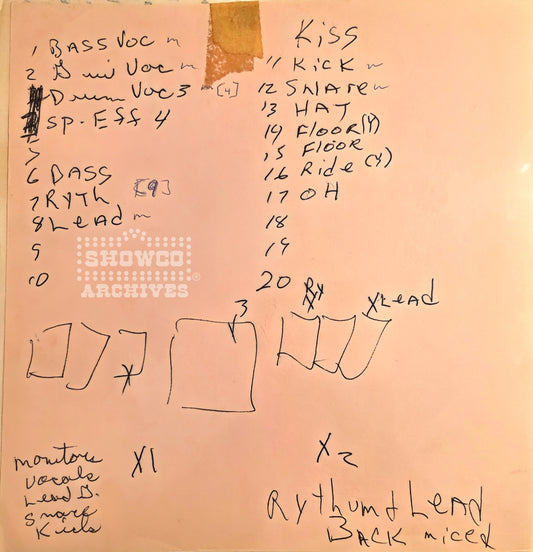 Kiss
1 BASS VOC
2 Gui Voc
Drum Voc 3 [4]
SP. Eff 4
5
6 BASS
7 RYTH [9]
8 LEAD
9
10
11 KICK
12 SNARE
13 HAT
14 FLOOR(Y)
15 FLOOR
16 Ride (Y)
17 OH
18
19
20
SHOWCO®
ARCHIVES
3
Ry
X
X LEAD
X
X1
X2
monitors
Vocals
Lead G.
Snare
Kick
Rythum + LEAD
BACK miced